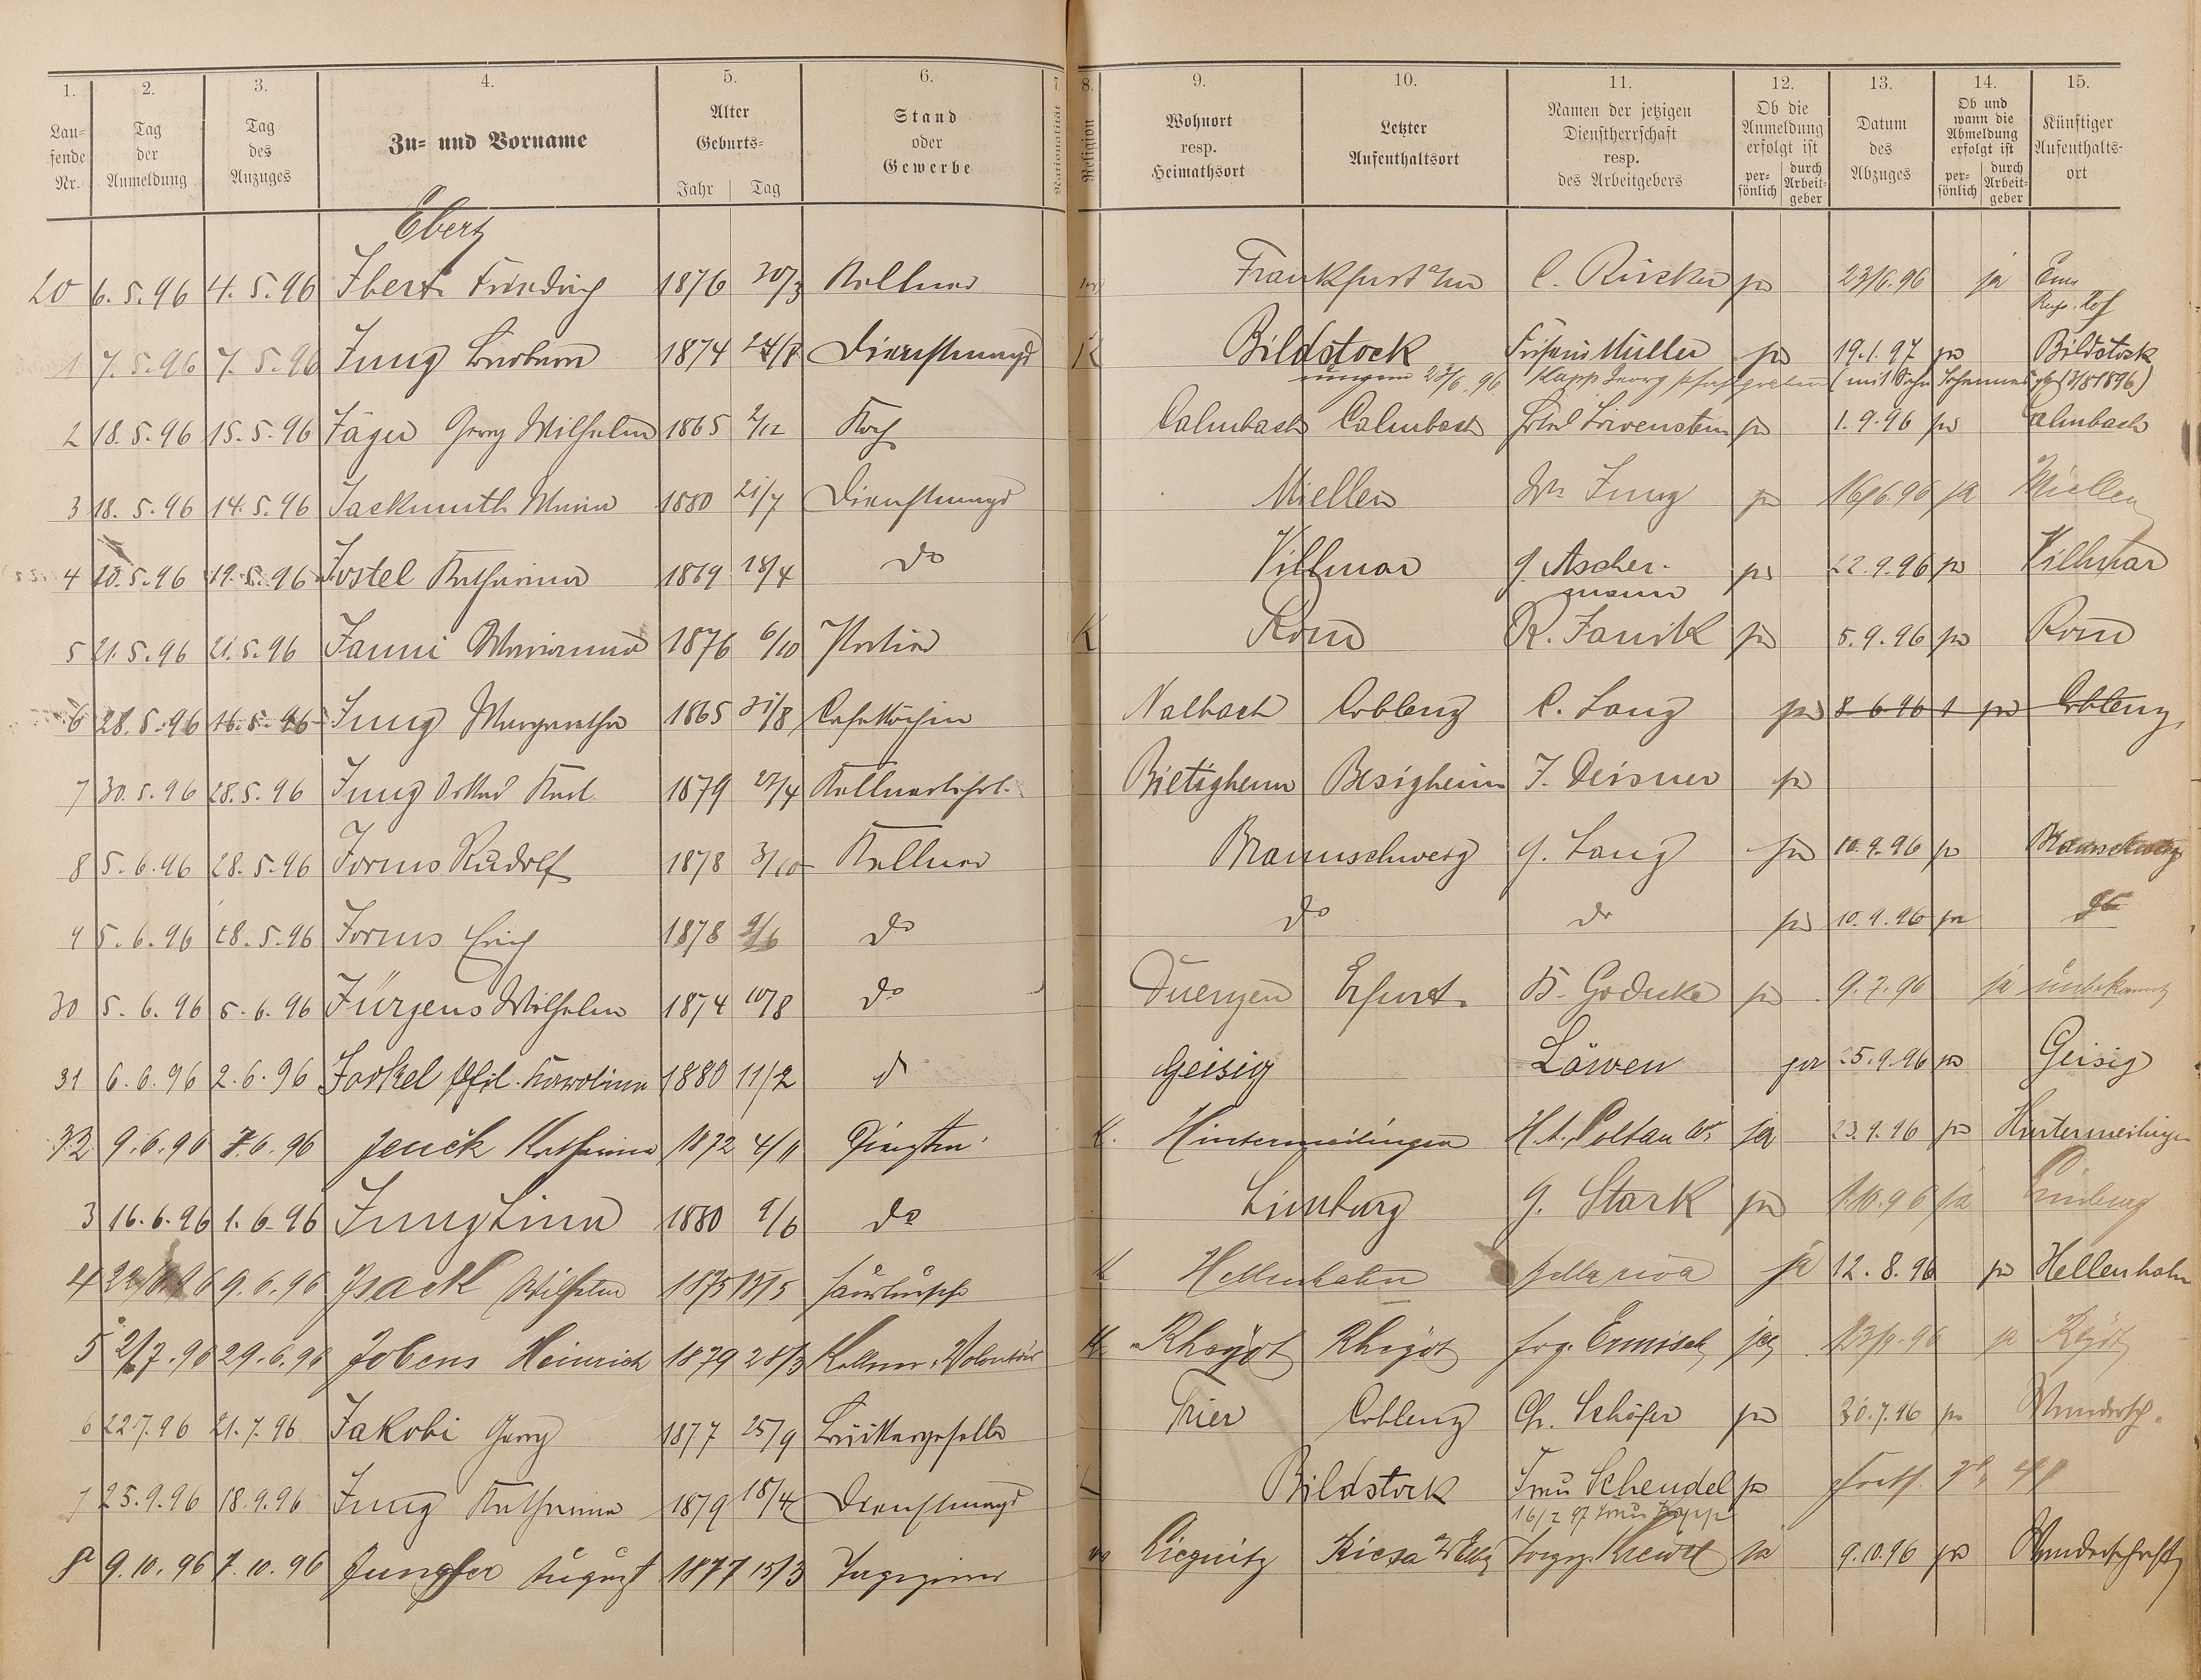 1. 2. 3. 4. 5. 6. 7. 8. 9. 10. 11. 12. 13. 14. 15.
Lau-
fende
Nr.
Tag
der
Anmeldung
Tag
des
Anzuges
Zu- und Vorname
Alter
Geburts-
Jahr Tag
Stand
oder
Gewerbe
Nationalität
Religion
Wohnort
resp.
Heimathsort
Letzter
Aufenthaltsort
Namen der jetzigen
Dienstherrschaft
resp.
des Arbeitgebers
Ob die
Anmeldung
erfolgt ist
per-
sönlich
durch
Arbeit-
geber
Datum
des
Abzuges
Ob und
wann die
Abmeldung
erfolgt ist
per-
sönlich
durch
Arbeit-
geber
Künftiger
Aufenthalts-
ort
Ebertz
20 6.5.96 4.5.96 Ibert Friedrich 1876 30/3 Kellner Frankfurt a/m C. Rücker ja 23/6.96 ja Ems
Hof
1 7.5.96 7.5.96 Jung Barbara 1874 Dienstmagd K Bildstock Müller ja 19.1.97 ja Bildstock
23/6.96. Kapp Georg (mit Sohn Johannes 1896)
2 18.5.96 15.5.96 Jäger Georg Wilhelm 1865 2/12 Koch Calmbach Calmbach Hotel Löwenstein ja 1.9.96 ja Calmbach
3 18.5.96 14.5.96 Jackmuth Maria 1880 21/7 Dienstmagd Miellen Wn Jung ja 16/6.96 ja Miellen
4 20.5.96 19.5.96 Jostel Katharina 1869 18/4 do Villmar G Ascher-
mann ja 22.9.96 ja Villmar
5 21.5.96 21.5.96 Janni Marianna 1876 6/10 K Rom R. Janik ja 5.9.96 ja Rom
6 28.5.96 16.5.96 Jung Margaretha 1865 31/8 Cafeköchin Nalbach Coblenz C. Lang ja 8 6 96 ja Coblenz
7 30.5.96 28.5.96 Jung Karl 1879 27/4 Kellnerlehrl. Bietigheim Besigheim J. Deisner ja
8 5.6.96 28.5.96 Jorns Rudolf 1878 3/10 Kellner Braunschweig G. Lang ja 10.9.96 ja Braunschweig
9 5.6.96 28.5.96 Jorns Erich 1878 do do do ja 10.9.96 ja do
30 5.6.96 5.6.96 Jürgens Wilhelm 1874 10/8 do Duengen Erfurt B. Godecke ja 9.7.96 ja unbekannt
31 6.6.96 2.6.96 Jackel Phil. Karolina 1880 11/2 d Geisig Löwen ja 25.9.96 ja Geisig
32 9.6.96 7.6.96 Jeuck Katharina 1872 4/11 K. Hintermeilingen H.A. Poltau Wr ja 23.9.96 ja Hintermeilingen
3 16.6.96 1.6.96 Jung Lina 1880 9/6 do Limburg G. Stark ja 1.10.96 ja Limburg
4 9.6.96 Jsack Wilhelm 1875 13/5 Hausbursche K Hellenhahn Bella riva ja 12.8.96 ja Hellenhahn
5 2/7.96 29.6.96 Jobens Heinrich 1879 28/3 Kellner-Volontär K Rheydt Rheydt Hrg. Ermisch ja 96 ja Rheydt
6 22.7.96 21.7.96 Jakobi Georg 1877 25/9 Trier Coblenz Ch. Schäfer ja 30.7.96 ja Wandersch.
7 25.9.96 18.9.96 Jung Katharina 1879 18/4 Dienstmagd Bildstock Frau Schendel ja
16/2 97 Frau Kapp
8 9.10.96 7.10.96 Jungfer August 1877 15/3 Tapezierer Liegnitz Riesa a/Elbe ja 9.10.96 ja Wanderschaft